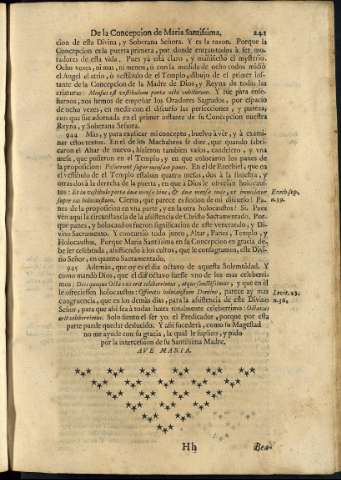 De la Concepcion de Maria Santissima. 241
cion de esta Divina, y Soberana Señora. Y es la razon. Porque la
Concepcion es la puerta primera, por donde entran todos à ser mo-
radores de esta vida. Pues ya està claro, y manifiesto el mysterio.
Ochos vezes, ni mas, ni menos, ò con la medida de ocho codos midiò
el Angel al atrio, ò vestibulo de el Templo, dibujo de el primer ins-
tante de la Concepcion de la Madre de Dios, y Reyna de todas las
criaturas: Mensus est vestibulum portæ octo cubitorum. Y fue para enseñ-
arnos, nos hemos de empeñar los Oradores Sagrados, por espacio
de ocho vezes, en medir con el discurso las perfecciones, y gracias,
con que fue adornada en el primer instante de su Concepcion nuestra
Reyna, y Soberana Señora.
944 Mas, y para explicar mi concepto, buelvo à vèr, y à exami-
nar estos textos. En el de los Machabeos se dize, que quando fabri-
caron el Altar de nuevo, hizieron tambien vasos, candelero, y vna
mesa, que pusieron en el Templo, y en que colocaron los panes de
la proposicion: Posuerunt super mensam panes. En el de Ezechiel, que en
el vestibulo de el Templo estaban quatro mesas, dos à la siniestra, y
otras dos à la derecha de la puerta, en que à Dios se ofrecian holocaus-
tos: Et in vestibulo portæ duæ mensæ hinc, & duæ mensæ inde, ut immoletur
super eas holocaustum. Cierto, que parece es ficcion de mi discurso! Pa-
nes de la proposicion en vna parte, y en la otra holocaustos! Si. Para
vèn aqui la circunstancia de la assistencia de Christo Sacramentado. Por-
que panes, y holocaustos fueron significacion de este venerando, y Di-
vino Sacramento. Y concurriò todo junto, Altar, Panes, Templo, y
Holocaustos. Porque Maria Santissima en la Concepcion en gracia de-
be ser celebrada, assistiendo à los cultos, que le consagramos, este Divi-
no Señor, en quanto Sacramentado.
Ezech. sup.
n. 39.
945 Además, que oy es el dia octavo de aquesta Solemnidad. Y
como mandò Dios, que el dia octavo fuesse vno de los mas celeberri-
mos: Dies quoque octavus erit celeberrimus, atque sanctissimus, y que en èl
se ofreciessen holocaustos: Offeretis holocaustum Domino, parece ay mas
congruencia, que en los demàs dias, para la assistencia de este Divino
Señor, para que assi serà à todas luzes totalmente celeberrimo: Octavus
erit celeberrimus. Solo siento el ser yo el Predicador, porque por esta
parte puede quedar deslucido. Y assi sucederà, como su Magestad
no me ayude con su gracia, la qual le suplico, y pido
por la intercession de su Santissima Madre.
Levit. 23.
n. 36.
AVE MARIA.
Hh Bea-